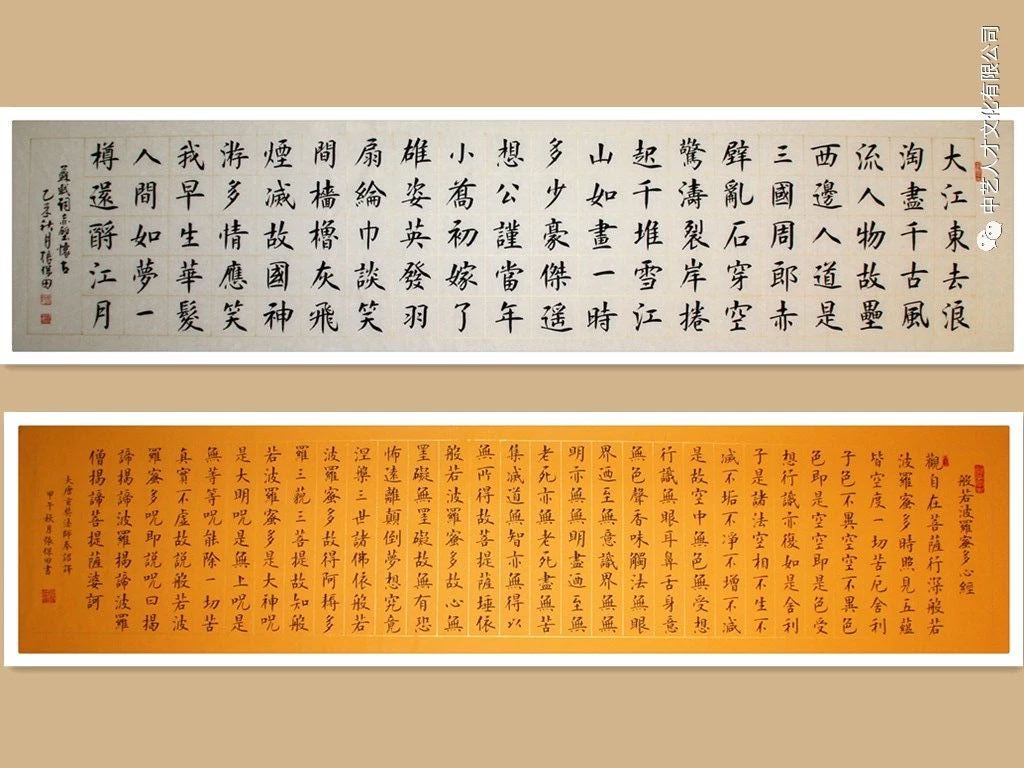 中艺人才文化有限公司
大江東去浪
淘盡千古風
流人物故壘
西邊人道是
三國周郎赤
壁亂石穿空
驚濤裂岸捲
起千堆雪江
山如畫一時
多少豪傑遥
想公謹當年
小喬初嫁了
雄姿英發羽
扇綸巾談笑
間檣櫓灰飛
煙滅故國神
游多情應笑
我早生華髮
人間如夢一
樽還酹江月
蘇軾詞赤壁懷古
乙未秋月張保田
般若波羅蜜多心經
觀自在菩薩行深般若
波羅蜜多時照見五蘊
皆空度一切苦厄舍利
子色不異空空不異色
色即是空空即是色受
想行識亦復如是舍利
子是諸法空相不生不
滅不垢不净不增不減
是故空中無色無受想
行識無眼耳鼻舌身意
無色聲香味觸法無眼
界迺至無意識界無無
明亦無無明盡迺至無
老死亦無老死盡無苦
集滅道無智亦無得以
無所得故菩提薩埵依
般若波羅蜜多故心無
罣礙無罣礙故無有恐
怖遠離顛倒夢想究竟
涅槃三世諸佛依般若
波羅蜜多故得阿耨多
羅三藐三菩提故知般
若波羅蜜多是大神呪
是大明呪是無上呪是
無等等呪能除一切苦
真實不虛故説般若波
羅蜜多呪即説呪曰揭
諦揭諦波羅揭諦波羅
僧揭諦菩提薩婆訶
大唐玄奘法師奉詔譯
甲午秋月張保田書